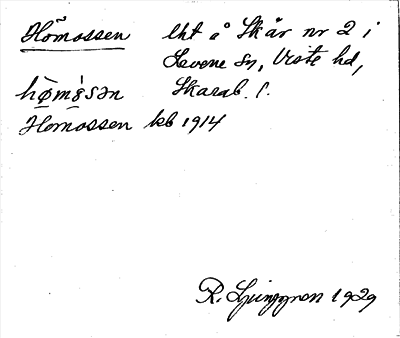 Hömossen lht å Skår nr 2 i
Levene sn, Viste hd,
hø̀mòsən Skarab. l.
Homossen kb 1914
R. Ljunggren 1929